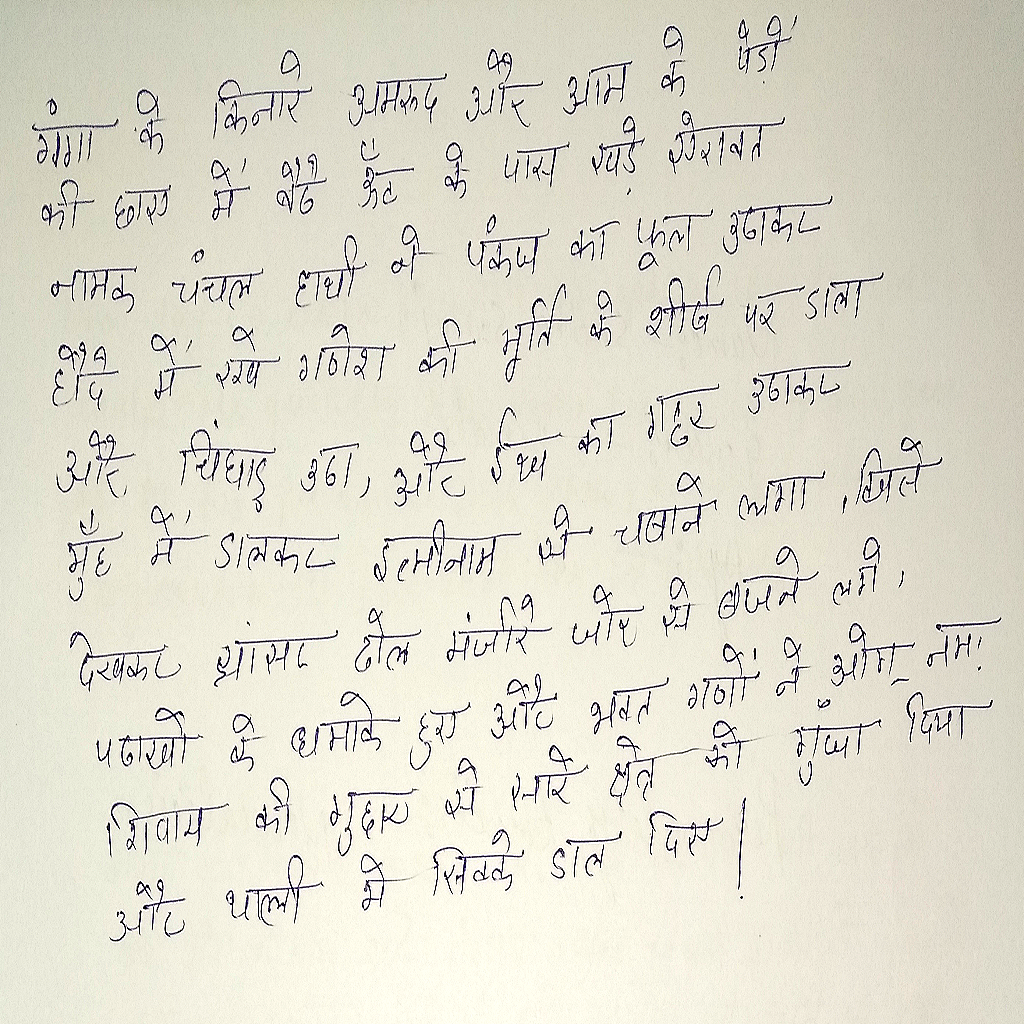 गंगा के किनारे अमरूद और आम के पेड़ों
की छाए में बैठे ऊँट के पास खड़े ऐरावत
नामक चंचल हाथी ने पंकज का फूल उठाकर
हौदे में रखे गणेश की मूर्ति के शीर्ष पर डाला
और चिंघाड़ उठा, और ईख का गट्ठर उठाकर
मुँह में डालकर इत्मीनाम से चबाने लगा, जिसे
देखकर झांझर ढोल मंजीरे जोर से बजने लगे,
पटाखों के धमाके हुए और भक्त गणों ने ओम् नमः
शिवाय की गुहार से सारे क्षेत्र को गुँजा दिया
और थाली में सिक्के डाल दिए।